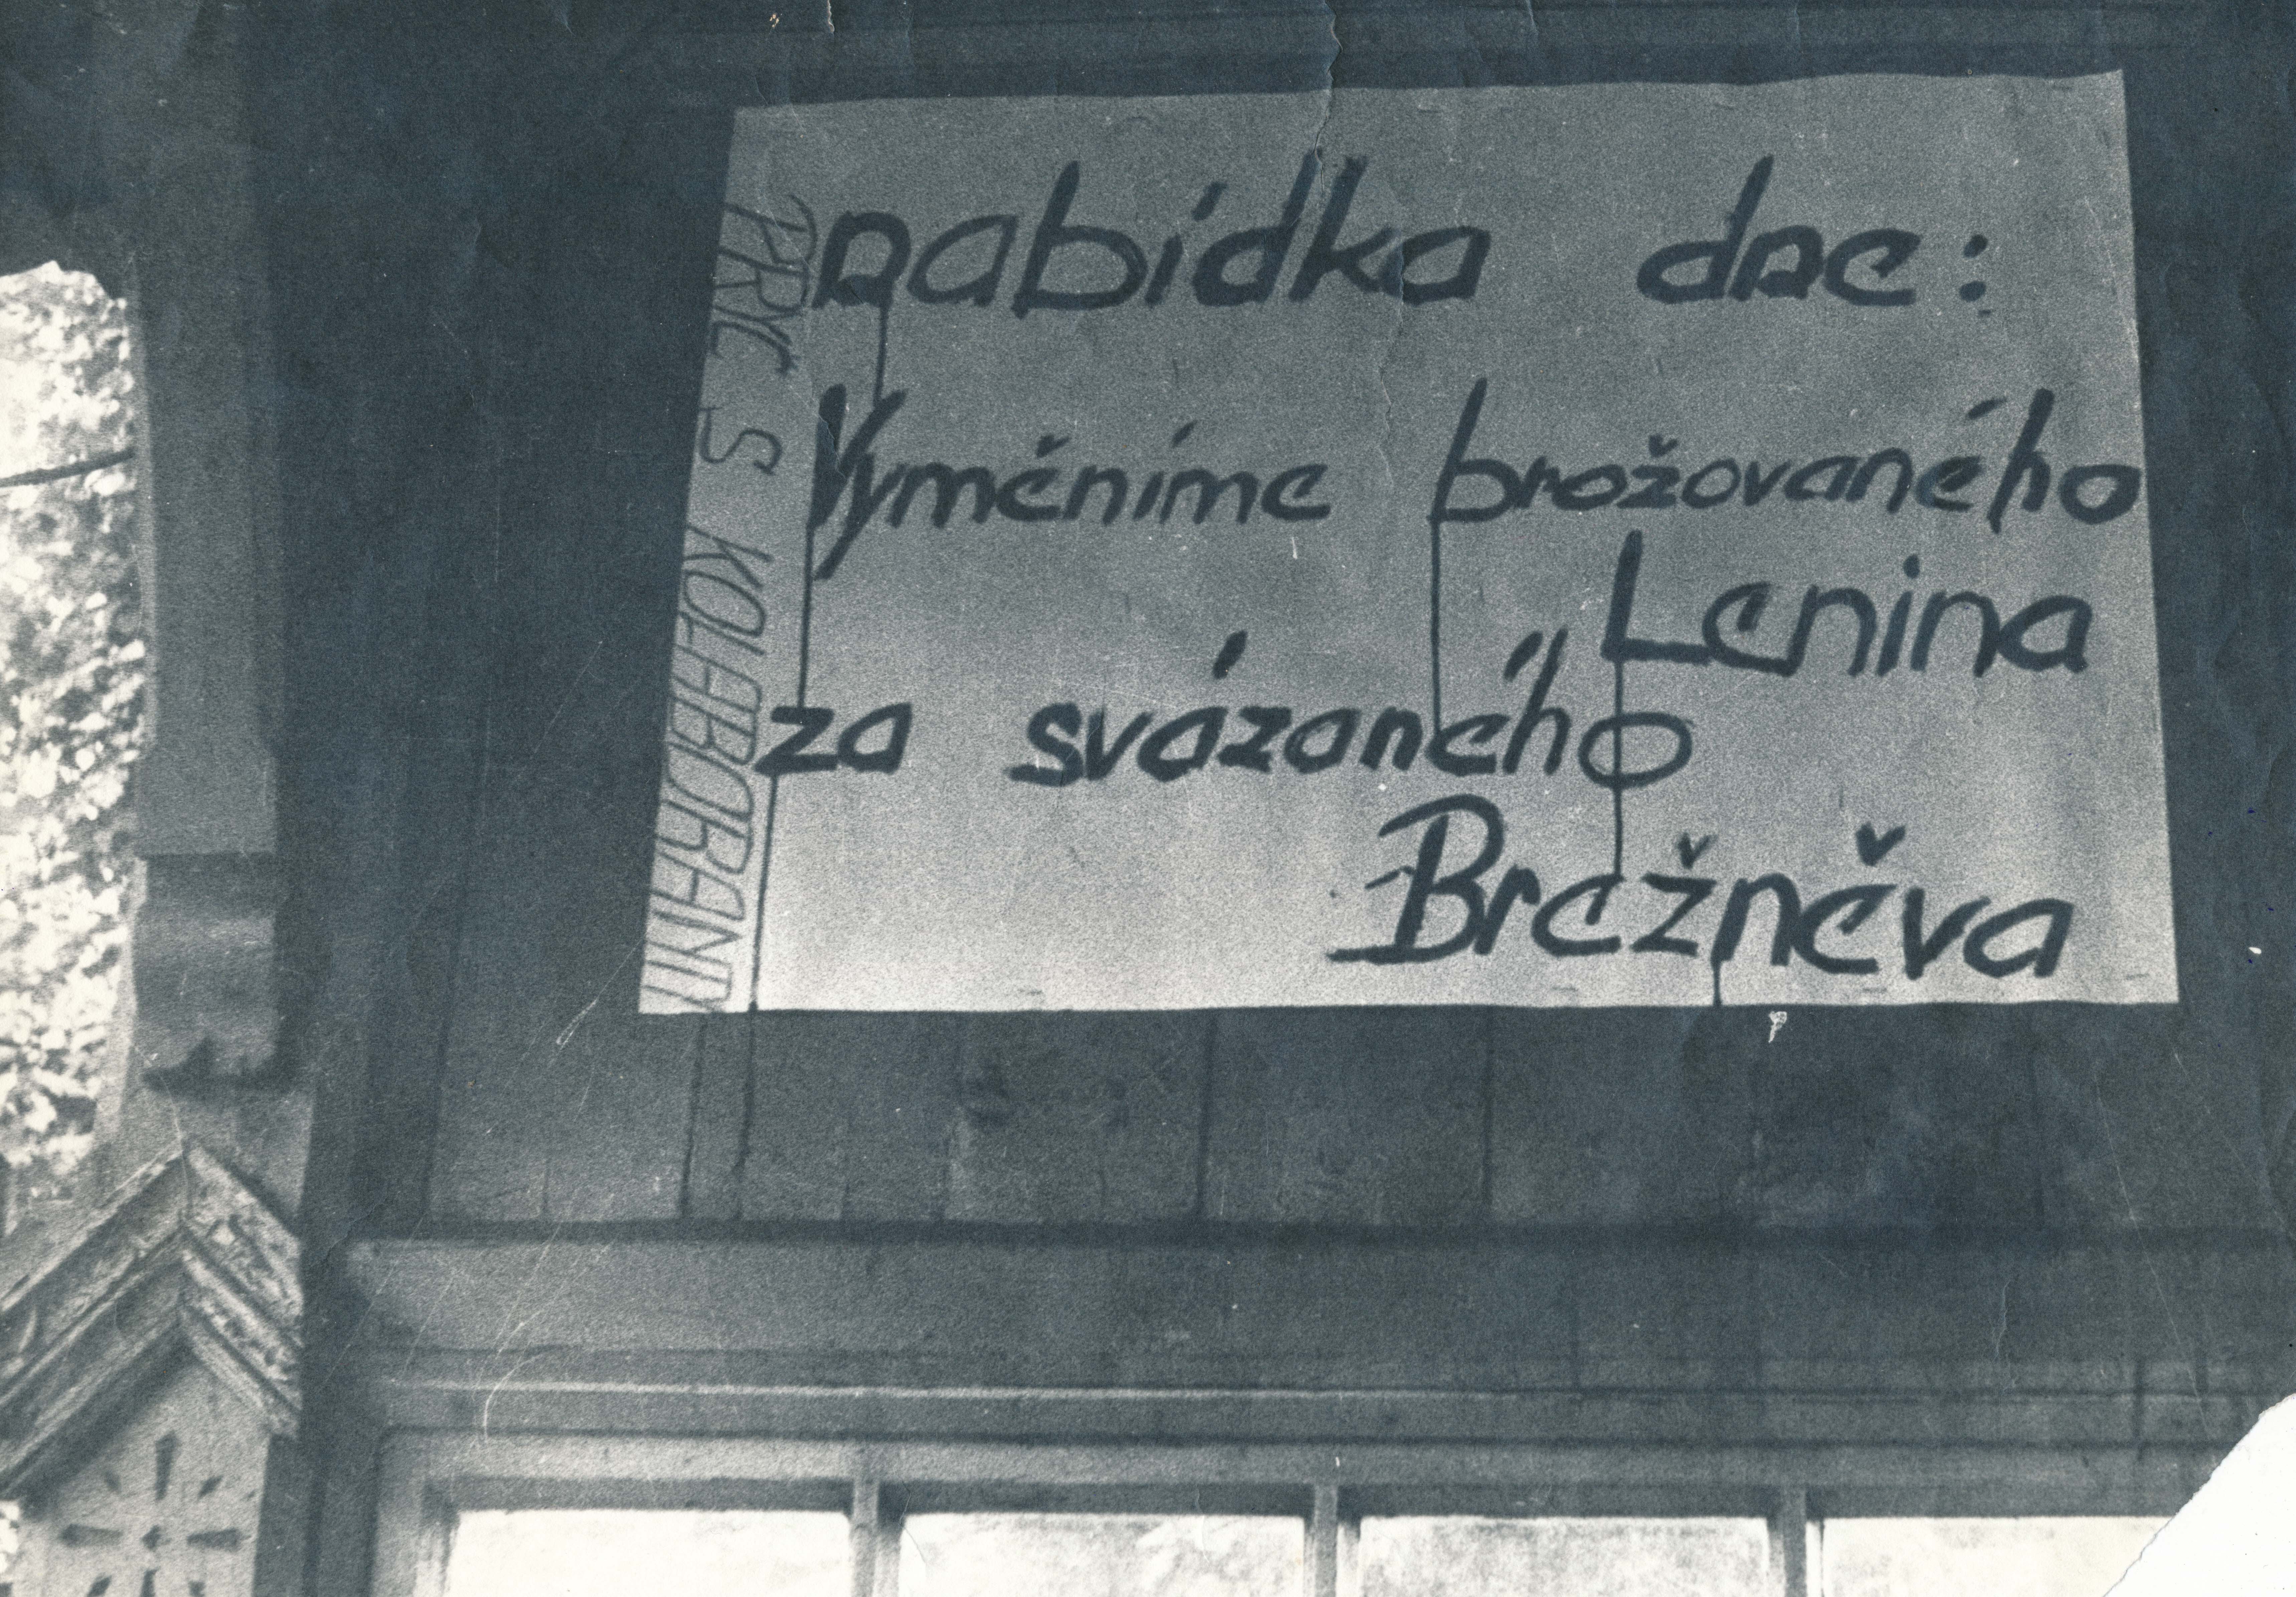 nabídka dne:
Vyměníme brožovaného
Lenina
za svázaného
Brežněva
PRYČ S KOLABORANTY